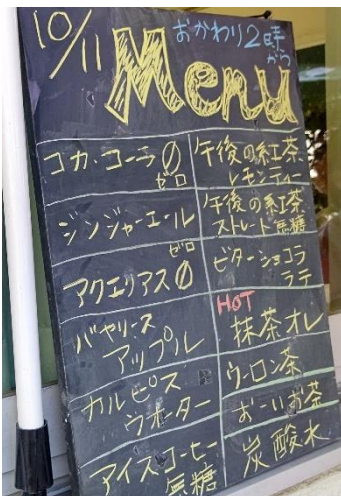 10/11
おかわり2時
から
Menu
コカ・コーラ0
ゼロ
ジンジャーエール
ゼロ
アクエリアス0
バヤリース
アップル
カルピス
ウォーター
アイスコーヒー
無糖
午後の紅茶
レモンティー
午後の紅茶
ストレート無糖
ビターショコラ
ラテ
HOT
抹茶オレ
ウーロン茶
おーいお茶
炭酸水